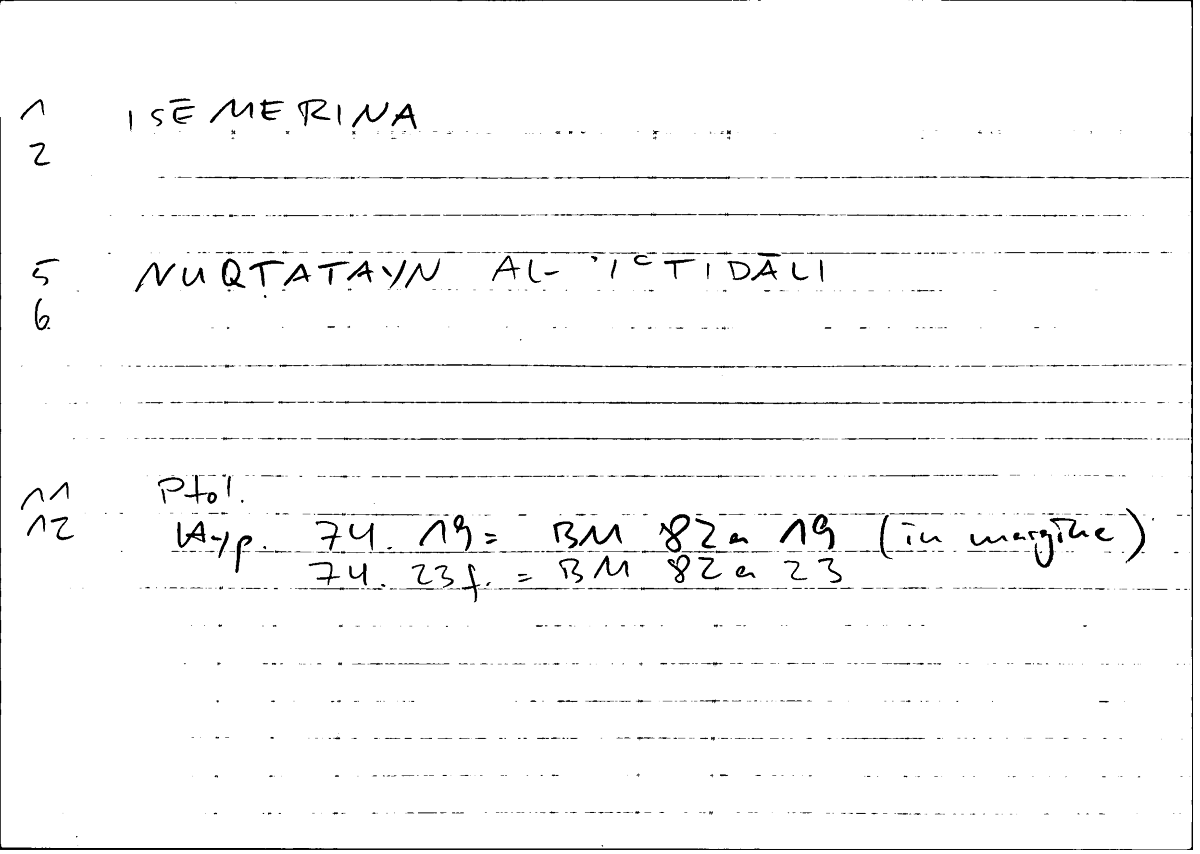 1 ISĒMERINA
2
5 NUQṬATAYN AL-ʾIʿTIDĀLI
6
11 Ptol.
12 Hyp. 74. 19 = BM 82a 19 (in margine)
74. 23f. = BM 82a 23